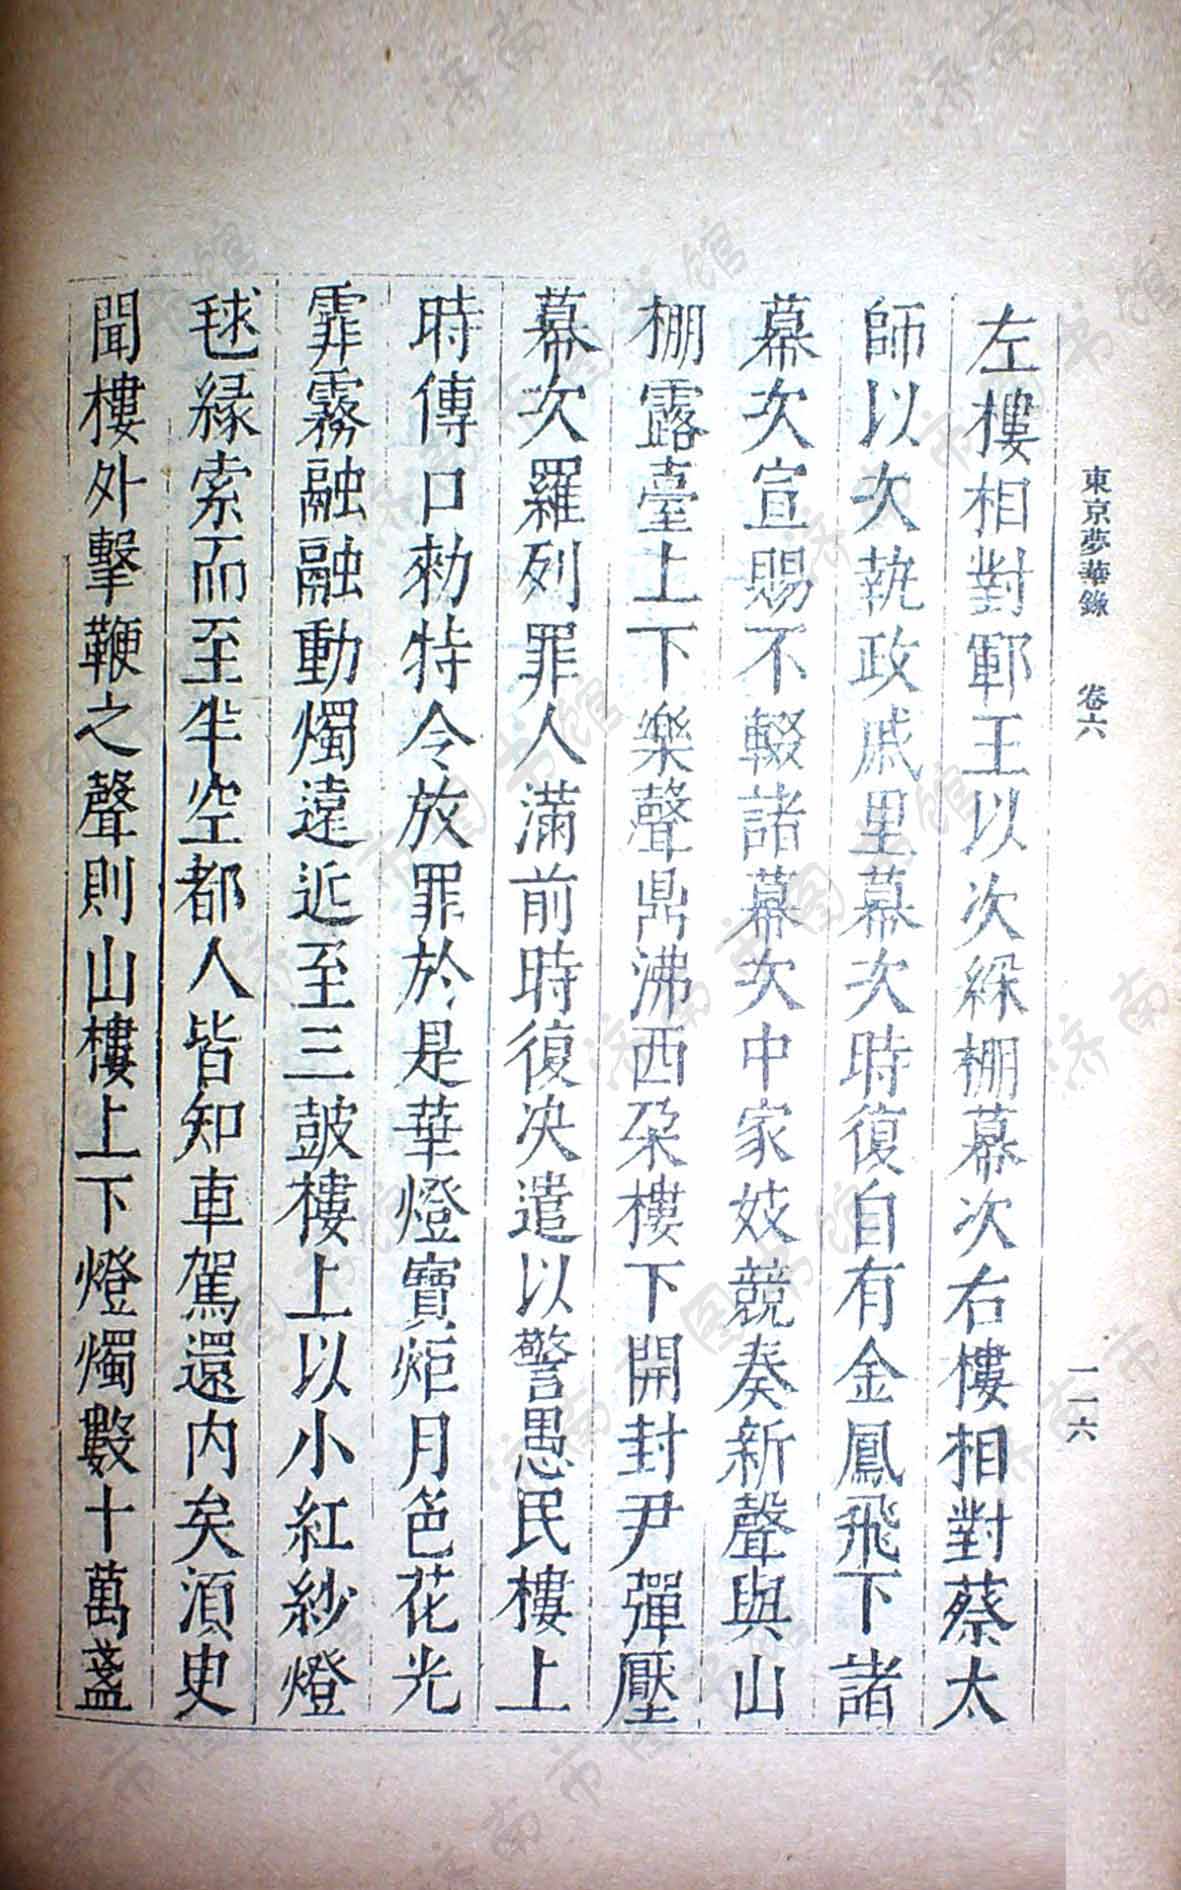 東京夢華錄 卷六 一一六
左樓相對鄆王以次綵棚幕次右樓相對蔡太
師以次執政戚里幕次時復自有金鳳飛下諸
幕次宣賜不輟諸幕次中家妓競奏新聲與山
棚露臺上下樂聲鼎沸西朶樓下開封尹彈壓
幕次羅列罪人滿前時復決遣以警愚民樓上
時傳口勑特令放罪於是華燈寶炬月色花光
霏霧融融動燭遠近至三鼓樓上以小紅紗燈
毬緣索而至半空都人皆知車駕還內矣須臾
聞樓外擊鞭之聲則山樓上下燈燭數十萬盞
济南市图书馆